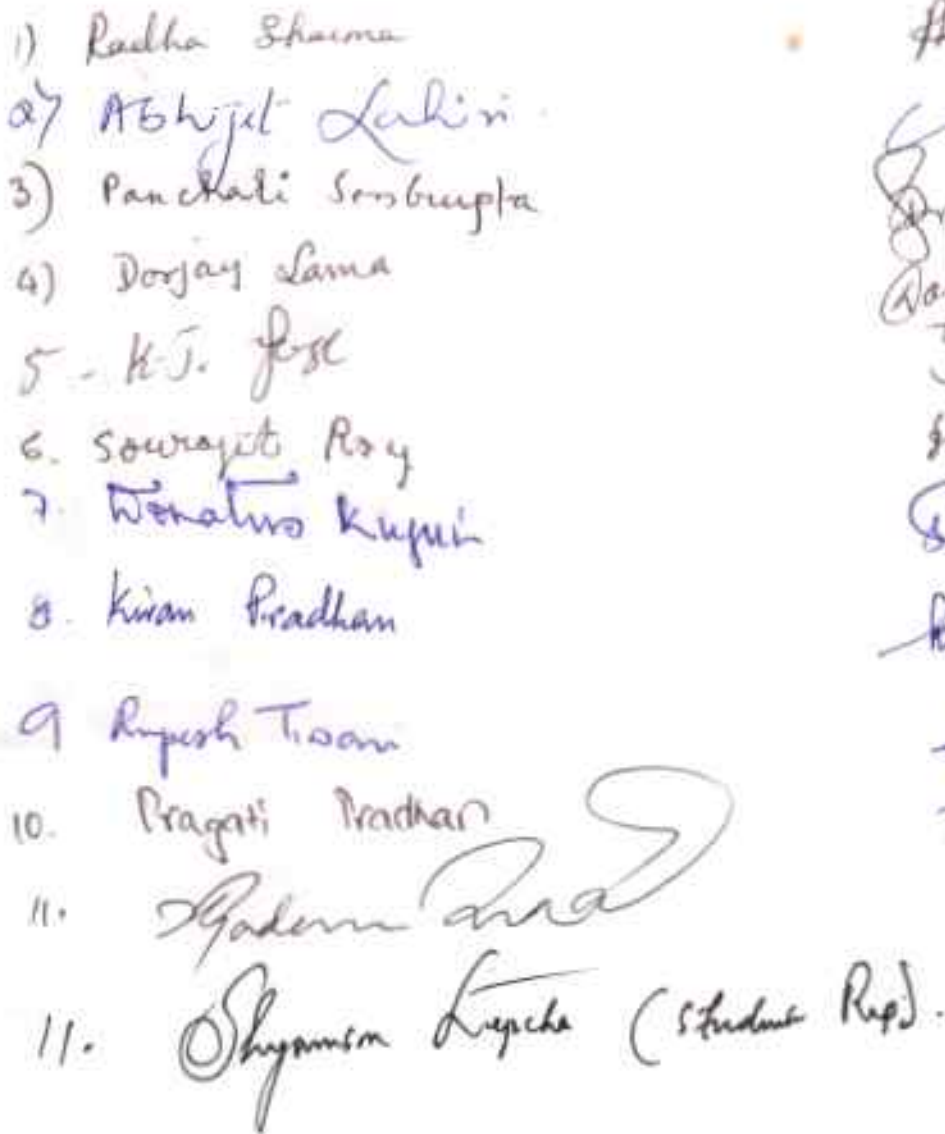 1) Radha Sharma
2) Abhijit Lahiri
3) Panchali Sengupta
4) Dorjay Lama
5 - K.J. Jose
6. Sourajit Roy
7. Donatus Kujur
8. Kiran Pradhan
9 Rupesh
10. Pragati Pradhan
11.
11. Lepcha (Student Rep).